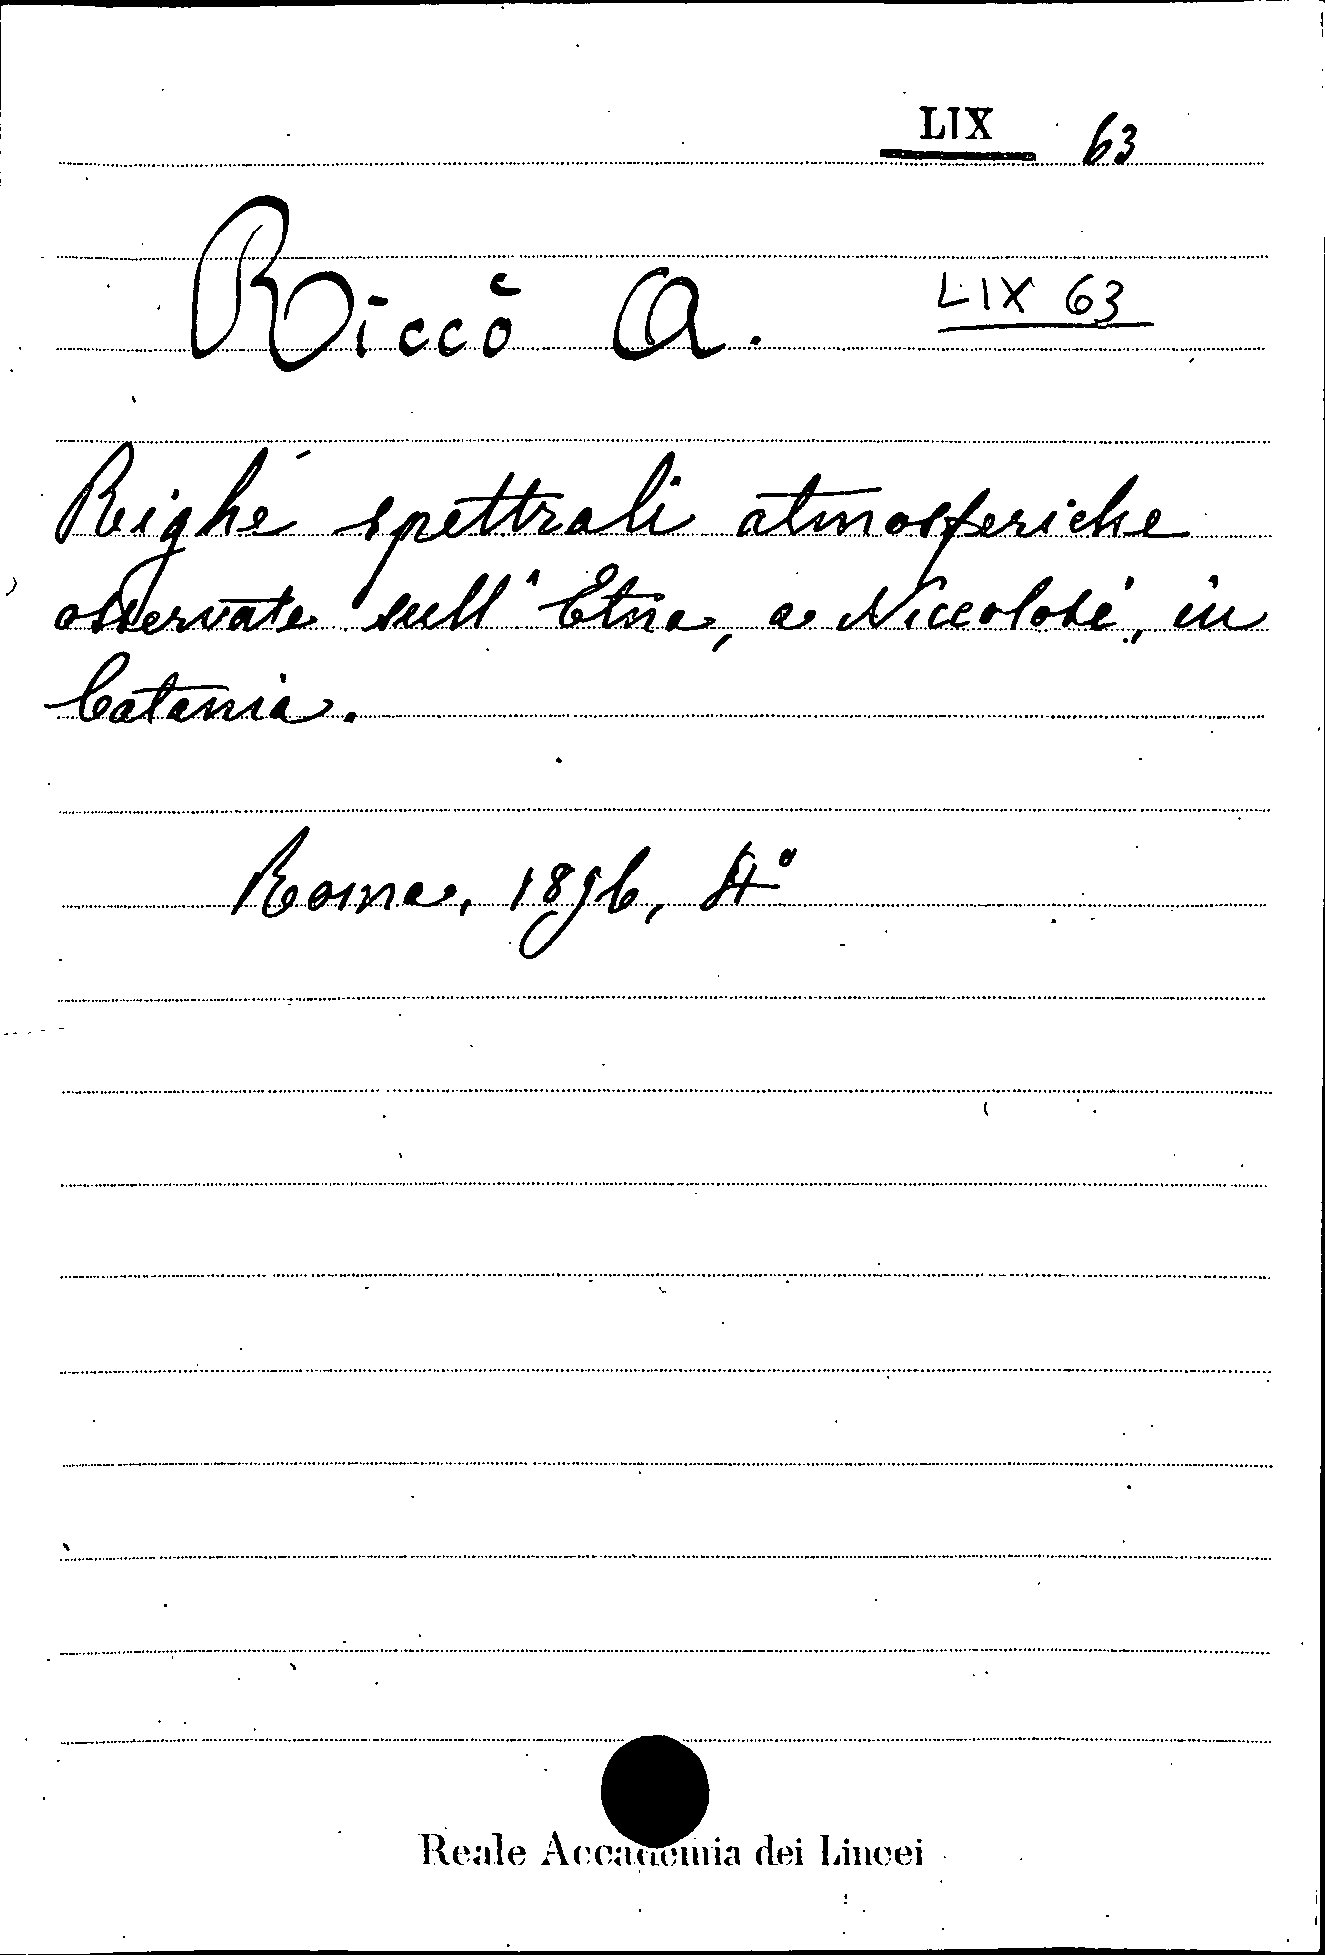 LIX 63
Riccò A. LIX 63
Righe spettrali atmosferiche
osservate sull'Etna, a Niccolosi, in
Catania.
Roma, 1896, 4°
Reale Accademia dei Lincei